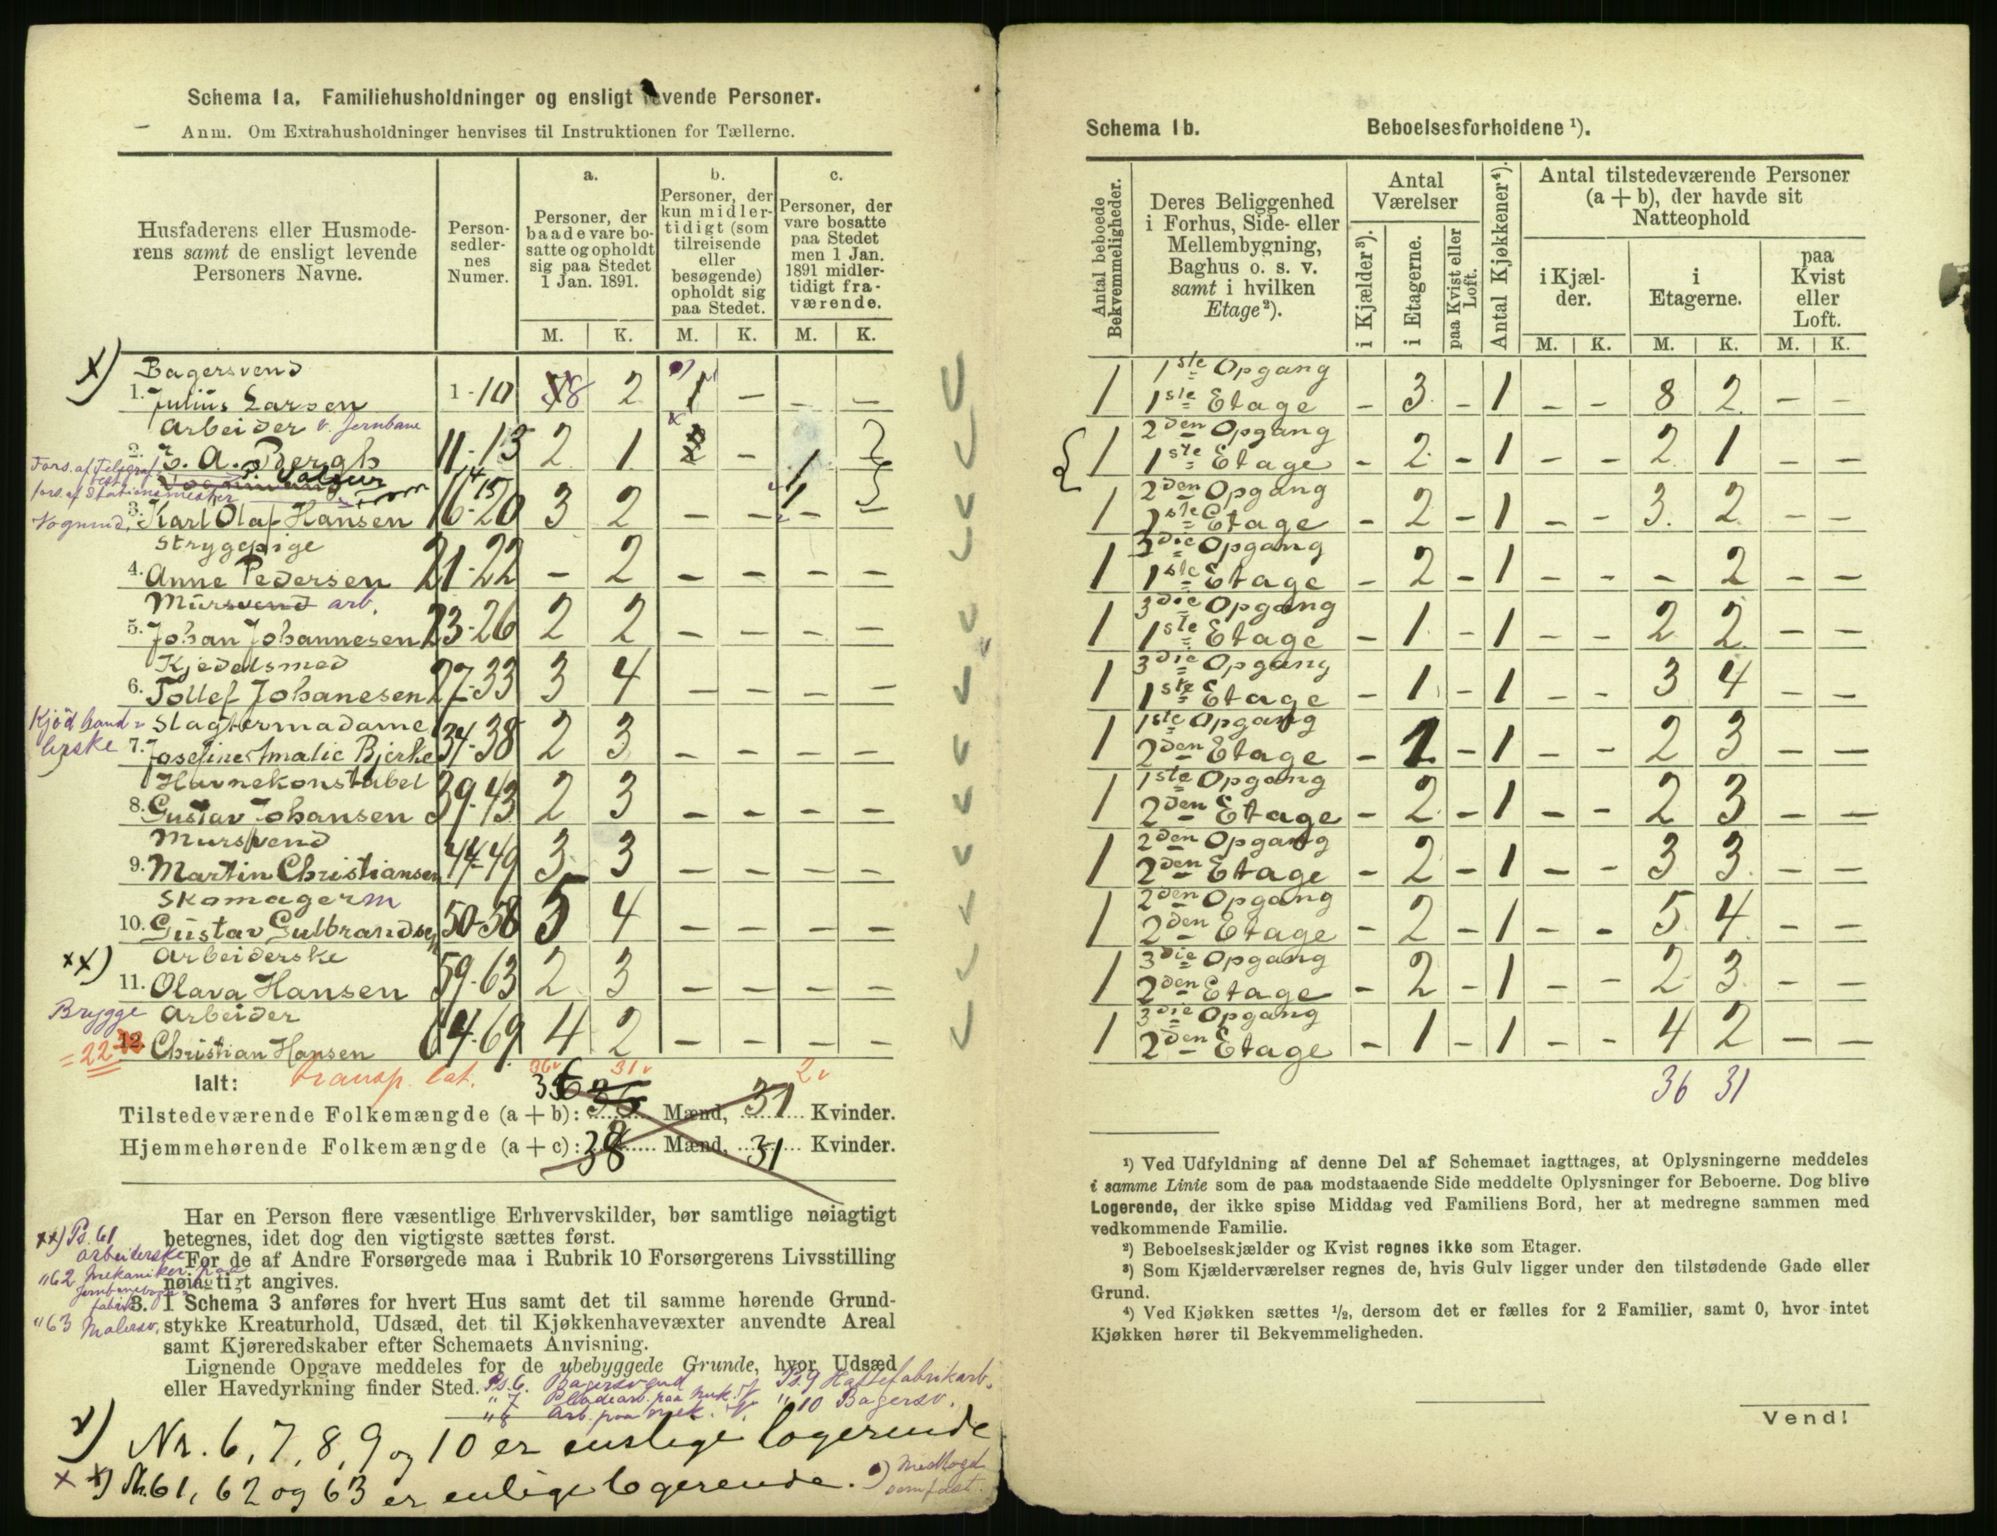 Schema 1a. Familiehusholdninger og ensligt levende Personer.
Anm. Om Extrahusholdninger henvises til Instruktionen for Tællerne.
Husfaderens eller Husmoderens samt de ensligt levende Personers Navne.
Person-sedler-nes Numer.
a.
Personer, der baade vare bosatte og opholdt sig paa Stedet 1 Jan. 1891.
b.
Personer, der kun midlertidigt (som tilreisende eller besøgende) opholdt sig paa Stedet.
c.
Personer, der vare bosatte paa Stedet men 1 Jan. 1891 midlertidigt fraværende.
M. K. M. K. M. K.
x) Bagersvend
1. Julius Larsen 1-10 8 2 1 – – –
Arbeider v. Jernbane
2. A. Bergh 11-13 2 1 2 – 1
Fors. af Telegraf
fors. af Stationsmester
Vognmd. 3. Karl Olaf Hansen 16-20 3 2 – – – –
Strygepige
4. Anne Pedersen 21-22 – 2 – – – –
Mursvend arb.
5. Johan Johannesen 23-26 2 2 – – – –
Kjedelsmed
6. Tollef Johanesen 27-33 3 4 – – – –
Kjød hand= Slagtermadame
lerske 7. Josefine Amalie Bjerke 34-38 2 3 – – – –
Havnekonstabel
8. Gustav Johansen 39-43 2 3 – – – –
Mursvend
9. Martin Christiansen 44-49 3 3 – – – –
Skomagerm
10. Gustav Gulbrandsen 50-58 5 4 – – – –
xx) Arbeiderske
11. Olava Hansen 59-63 2 3 – – – –
Brygge Arbeider
12. Christian Hansen 64-69 4 2 – – – –
= 22
Ialt: transp. lat. 36 31 2
Tilstedeværende Folkemængde (a + b): 36 Mænd, 31 Kvinder.
Hjemmehørende Folkemængde (a + c): 38 Mænd, 31 Kvinder.
Har en Person flere væsentlige Erhvervskilder, bør samtlige nøiagtigt
betegnes, idet dog den vigtigste sættes først.
For de af Andre Forsørgede maa i Rubrik 10 Forsørgerens Livsstilling
nøiagtigt angives.
3. I Schema 3 anføres for hvert Hus samt det til samme hørende Grund-
stykke Kreaturhold, Udsæd, det til Kjøkkenhavevæxter anvendte Areal
samt Kjøreredskaber efter Schemaets Anvisning.
Lignende Opgave meddeles for de ubebyggede Grunde, hvor Udsæd
eller Havedyrkning finder Sted.
xx) Ps. 61
arbeiderske
"62 Mekaniker paa
"63 Malersv.
Ps. 6. Bagersvend Ps. 9 Hattefabrikarb.
"7 "10 Bagersv.
"8 Arb. paa mek.
x) Nr. 6, 7, 8, 9 og 10 er enslige logerende
xx) Nr. 61, 62 og 63 er enlige logerende.
Schema 1b. Beboelsesforholdene ¹).
Antal beboede Bekvemmeligheder.
Deres Beliggenhed i Forhus, Side- eller Mellembygning, Baghus o. s. v. samt i hvilken Etage²).
Antal Værelser
i Kjælder³).
i Etagerne.
paa Kvist eller Loft.
Antal Kjøkkener⁴).
Antal tilstedeværende Personer (a + b), der havde sit Natteophold
i Kjælder.
i Etagerne.
paa Kvist eller Loft.
M. K. M. K. M. K.
1ste Opgang
1 1ste Etage – 3 – 1 – – 8 2 – –
2den Opgang
1 1ste Etage – 2 – 1 – – 2 1 – –
2den Opgang
1 1ste Etage – 2 – 1 – – 3 2 – –
3die Opgang
1 1ste Etage – 2 – 1 – – – 2 – –
3die Opgang
1 1ste Etage – 1 – 1 – – 2 2 – –
3die Opgang
1 1ste Etage – 1 – 1 – – 3 4 – –
1ste Opgang
1 2den Etage – 1 – 1 – – 2 3 – –
1ste Opgang
1 2den Etage – 2 – 1 – – 2 3 – –
2den Opgang
1 2den Etage – 2 – 1 – – 3 3 – –
2den Opgang
1 2den Etage – 2 – 1 – – 5 4 – –
3die Opgang
1 2den Etage – 2 – 1 – – 2 3 – –
3die Opgang
1 2den Etage – 1 – 1 – – 4 2 – –
36 31
¹) Ved Udfyldning af denne Del af Schemaet iagttages, at Oplysningerne meddeles
i samme Linie som de paa modstaaende Side meddelte Oplysninger for Beboerne. Dog blive
Logerende, der ikke spise Middag ved Familiens Bord, her at medregne sammen med
vedkommende Familie.
²) Beboelseskjælder og Kvist regnes ikke som Etager.
³) Som Kjælderværelser regnes de, hvis Gulv ligger under den tilstødende Gade eller
Grund.
⁴) Ved Kjøkken sættes ½, dersom det er fælles for 2 Familier, samt 0, hvor intet
Kjøkken hører til Bekvemmeligheden.
Vend!